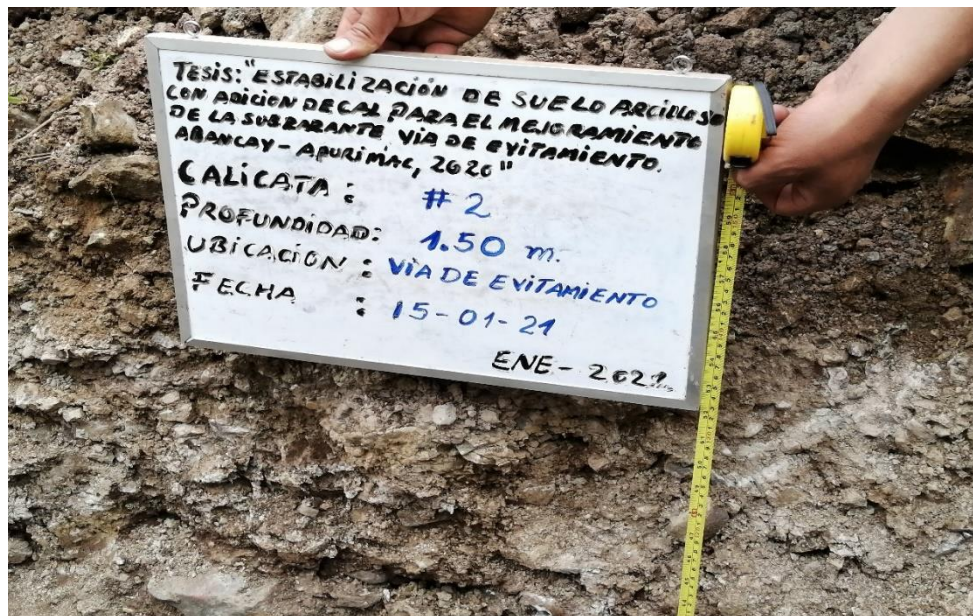 TESIS: "ESTABILIZACIÓN DE SUELO ARCILLOSO
CON ADICION DE CAL PARA EL MEJORAMIENTO
DE LA SUBRARANTE VÍA DE EVITAMIENTO.
ABANCAY - APURIMAC, 2020"
CALICATA : # 2
PROFUNDIDAD: 1.50 m.
UBICACIÓN : VÍA DE EVITAMIENTO
FECHA : 15-01-21
ENE - 2021